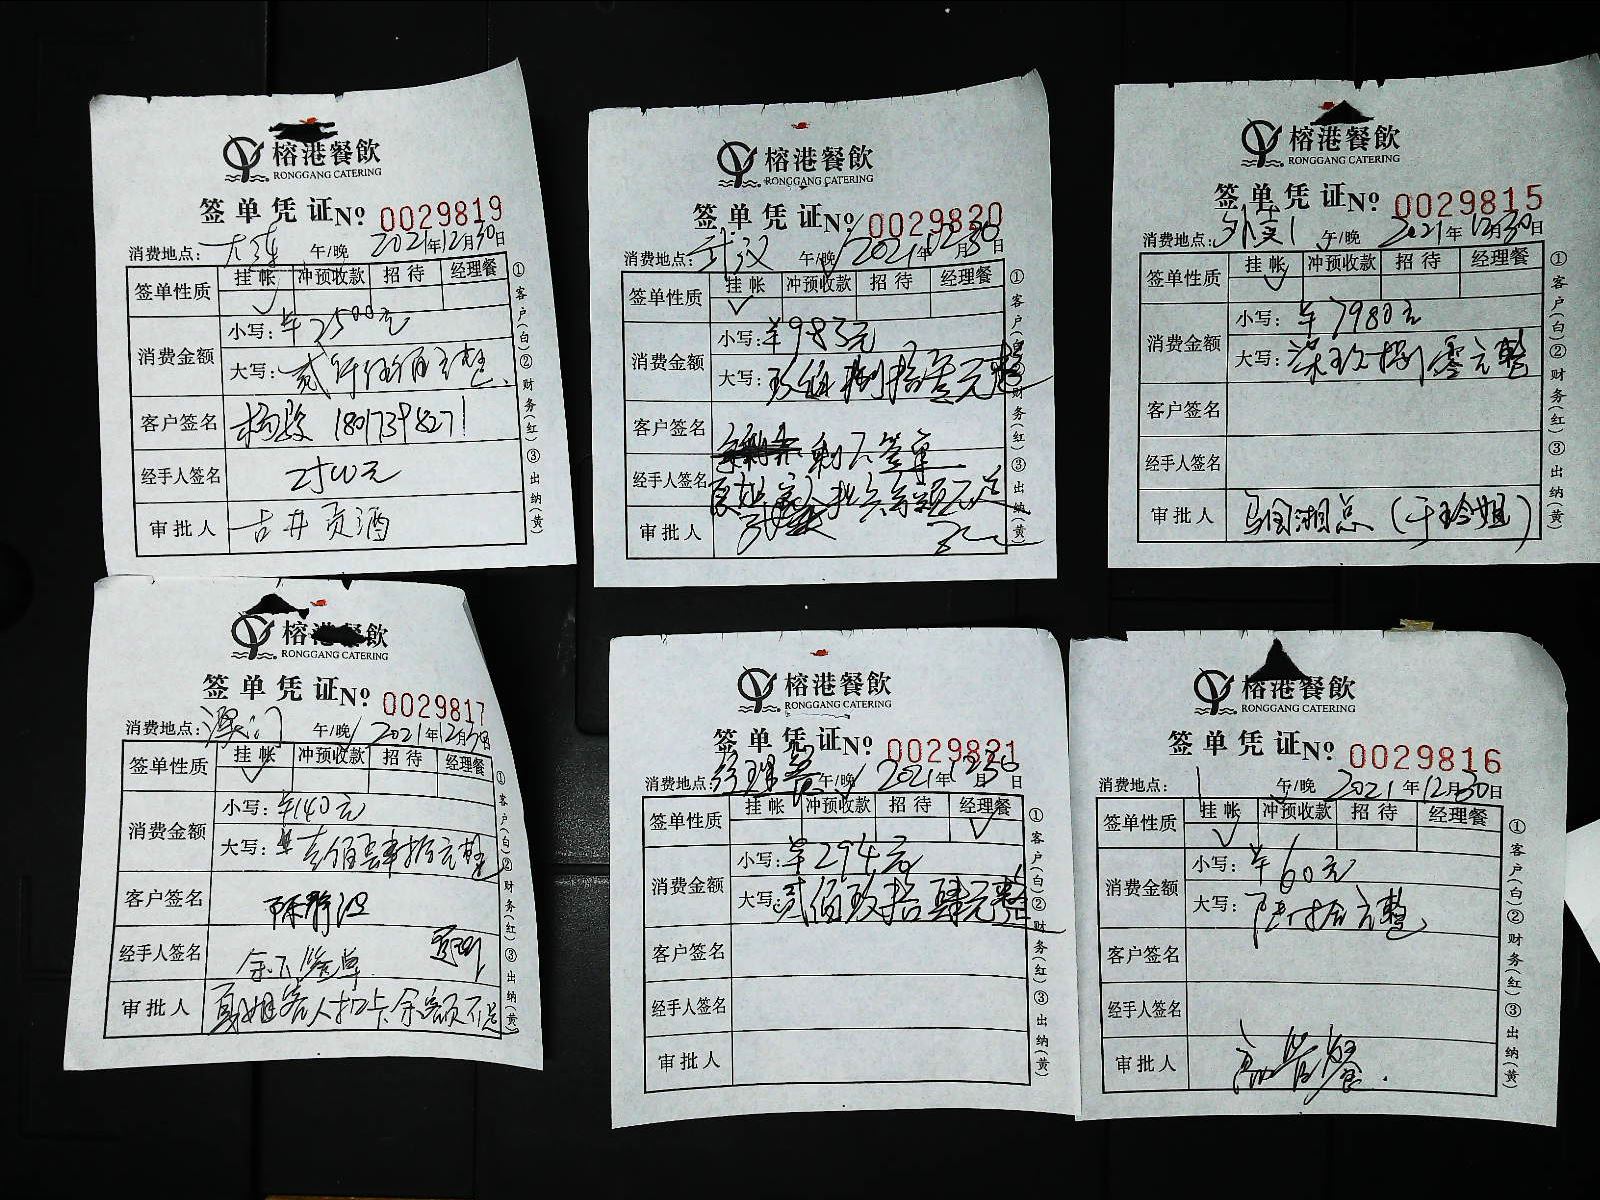 榕港餐飲
RONGGANG CATERING
签单凭证 No 0029819
消费地点：大连 午/晚 2021年12月30日
签单性质 挂帐 冲预收款 招待 经理餐
消费金额 小写：¥2500元
大写：贰仟伍佰元整
客户签名 18017398271
经手人签名 2500元
审批人 古井贡酒
①客户(白)②财务(红)③出纳(黄)
榕港餐飲
RONGGANG CATERING
签单凭证 No 0029820
消费地点：武汉 午/晚 2021年12月30日
签单性质 挂帐 冲预收款 招待 经理餐
消费金额 小写：¥983元
大写：玖佰捌拾叁元整
客户签名 剩下签单
经手人签名 夏姐客人扣卡余额不足
审批人
①客户(白)②财务(红)③出纳(黄)
榕港餐飲
RONGGANG CATERING
签单凭证 No 0029815
消费地点： 午/晚 2021年12月30日
签单性质 挂帐 冲预收款 招待 经理餐
消费金额 小写：¥7980元
大写：柒玖捌零元整
客户签名
经手人签名
审批人 湘总（于玲姐）
①客户(白)②财务(红)③出纳(黄)
榕港餐飲
RONGGANG CATERING
签单凭证 No 0029817
消费地点：澳门 午/晚 2021年12月30日
签单性质 挂帐 冲预收款 招待 经理餐
消费金额 小写：¥140元
大写：壹佰肆拾元整
客户签名 陈静
经手人签名 余下签单
审批人 夏姐客人扣卡余额不足
①客户(白)②财务(红)③出纳(黄)
榕港餐飲
RONGGANG CATERING
签单凭证 No 0029821
消费地点：经理餐 午/晚 2021年12月30日
签单性质 挂帐 冲预收款 招待 经理餐
消费金额 小写：¥294元
大写：贰佰玖拾肆元整
客户签名
经手人签名
审批人
①客户(白)②财务(红)③出纳(黄)
榕港餐飲
RONGGANG CATERING
签单凭证 No 0029816
消费地点： 午/晚 2021年12月30日
签单性质 挂帐 冲预收款 招待 经理餐
消费金额 小写：¥60元
大写：陆拾元整
客户签名
经手人签名
审批人 高管餐
①客户(白)②财务(红)③出纳(黄)